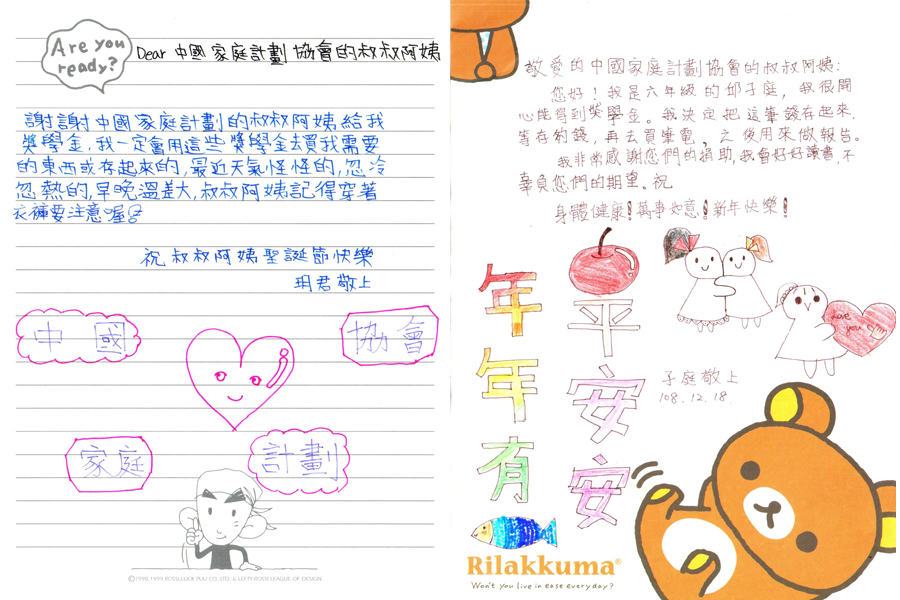 Are you
ready?
Dear 中國家庭計劃協會的叔叔阿姨
謝謝中國家庭計劃的叔叔阿姨給我
獎學金,我一定會用這些獎學金去買我需要
的東西或存起來的,最近天氣怪怪的,忽冷
忽熱的,早晚溫差大,叔叔阿姨記得穿著
衣褲要注意喔
祝叔叔阿姨聖誕節快樂
玥君敬上
中國
協會
家庭
計劃
©1998,1999 ROSS/LUCK PUU CO.,LTD. & LEFTY.ROSS LEAGUE OF DESIGN
敬愛的中國家庭計劃協會的叔叔阿姨:
您好!我是六年級的邱子庭,我很開
心能得到獎學金。我決定把這筆錢存起來,
等存夠錢,再去買筆電,之後用來做報告。
我非常感謝您們的捐助,我會好好讀書,不
辜負您們的期望。祝
身體健康!萬事如意!新年快樂!
平安安
年年有
Love
you
子庭敬上
108.12.18.
Rilakkuma®
Won't you live in ease everyday?